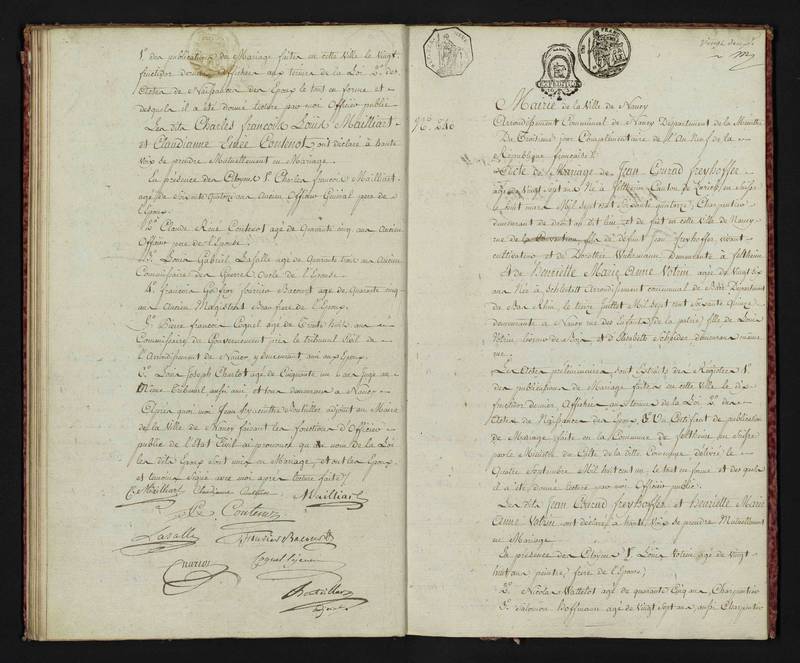 1º des publications de Mariage faites en cette ville le Vingt
fructidor dernier affichées aux termes de la Loi 2º des
Actes de Naissance des Epoux le tout en forme et
desquels il a été donné lecture par moi Officier public
Les dits Charles françois Louis Mailliart
et Claudianne Coutenot, ont déclaré à haute
voix se prendre Mutuellement en Mariage.
En présence des Citoyens 1º Charles francois Mailliart
agé de Soixante quatorze ans Ancien Officier pere de
l'Epoux
2º Claude René Coutenot agé de Quarante cinq ans Ancien
Officier pere de l'Epouse
3º Louis Gabriel Lasalle agé de Quarante trois ans Ancien
Commissaire des Guerres Oncle de l'Epouse
4º francois Bacourt agé de Quarante cinq
ans Ancien Magistrat Beau frere de l'Epoux
5º Pierre francois Coquel agé de Trente huit ans
Commissaire du Gouvernement près le tribunal Civil de
l'Arrondissement de Nancy y demeurant ami aux Epoux
6º Louis Joseph Charlot agé de Cinquante un ans Juge au
Même Tribunal aussi ami, et tous demeurans a Nancy
Après quoi moi Jean hyacinthe Boutillier adjoint au Maire
de la Ville de Nancy faisant les fonctions d'Officier
public de l'Etat Civil ai prononcé qu'au nom de la Loi
les dits Epoux sont unis en Mariage, et ont les Epoux
et temoins Signé avec moi après lecture faite
C. Mailliart Claudianne Coutenot Mailliart
Coutenot
Lasalle Bacourt
Coquel
Charlot
Boutillier
adjoint
Nº 240
Mairie de la Ville de Nancy
Arrondissement Communal de Nancy Département de la Meurthe
Du Troisieme jour Complementaire de l'An Neuf de la
République française
Acte de Mariage de Jean Conrad freyhoffer
agé de Vingt Sept ans Né a feltheim Canton de Zurich en Suisse
le huit mars Mil Sept cent Soixante quatorze, Charpentier
demeurant de droit au dit lieu et de fait en cette Ville de Nancy
rue de la Convention fils de défunt Jean freyhoffer, vivant
cultivateur et de Dorothée Wuhrmann Demeurante a feltheim
Et de henriette Marie Anne Votrin agée de Vingt Six
ans Née à Schlestatt Arrondissement communal de Département
du Bas Rhin, le treize Juillet Mil Sept cent Soixante Quinze
demeurante a Nancy rue des Enfans de la patrie, fille de Louis
Votrin et d'Elisabeth Scheider demeurans même
rue.
Les Actes préliminaires sont Extraits des Registres 1º
des publications de Mariage faites en cette ville le dix
fructidor dernier, Affichées aux termes de la Loi 2º des
Actes de Naissance des Epoux, & Un Certificat de publication
de Mariage faite en la Commune de feltheim en Suisse
par le Ministre du Culte de la dite Commune, délivré le
Quatre Septembre Mil huit cent un, le tout en forme et des quels
il a été donné lecture par moi Officier public.
Les dits Jean Conrad freyhoffer et henriette Marie
Anne Votrin ont déclaré à haute Voix se prendre Mutuellement
en Mariage
En présence des Citoyens 1º Louis Votrin agé de Vingt
huit ans peintre, frere de l'Epouse;
2º Nicolas Wattelot agé de quarante Cinq ans, Charpentier
3º Salomon hoffmann agé de Vingt Sept ans, aussi Charpentier